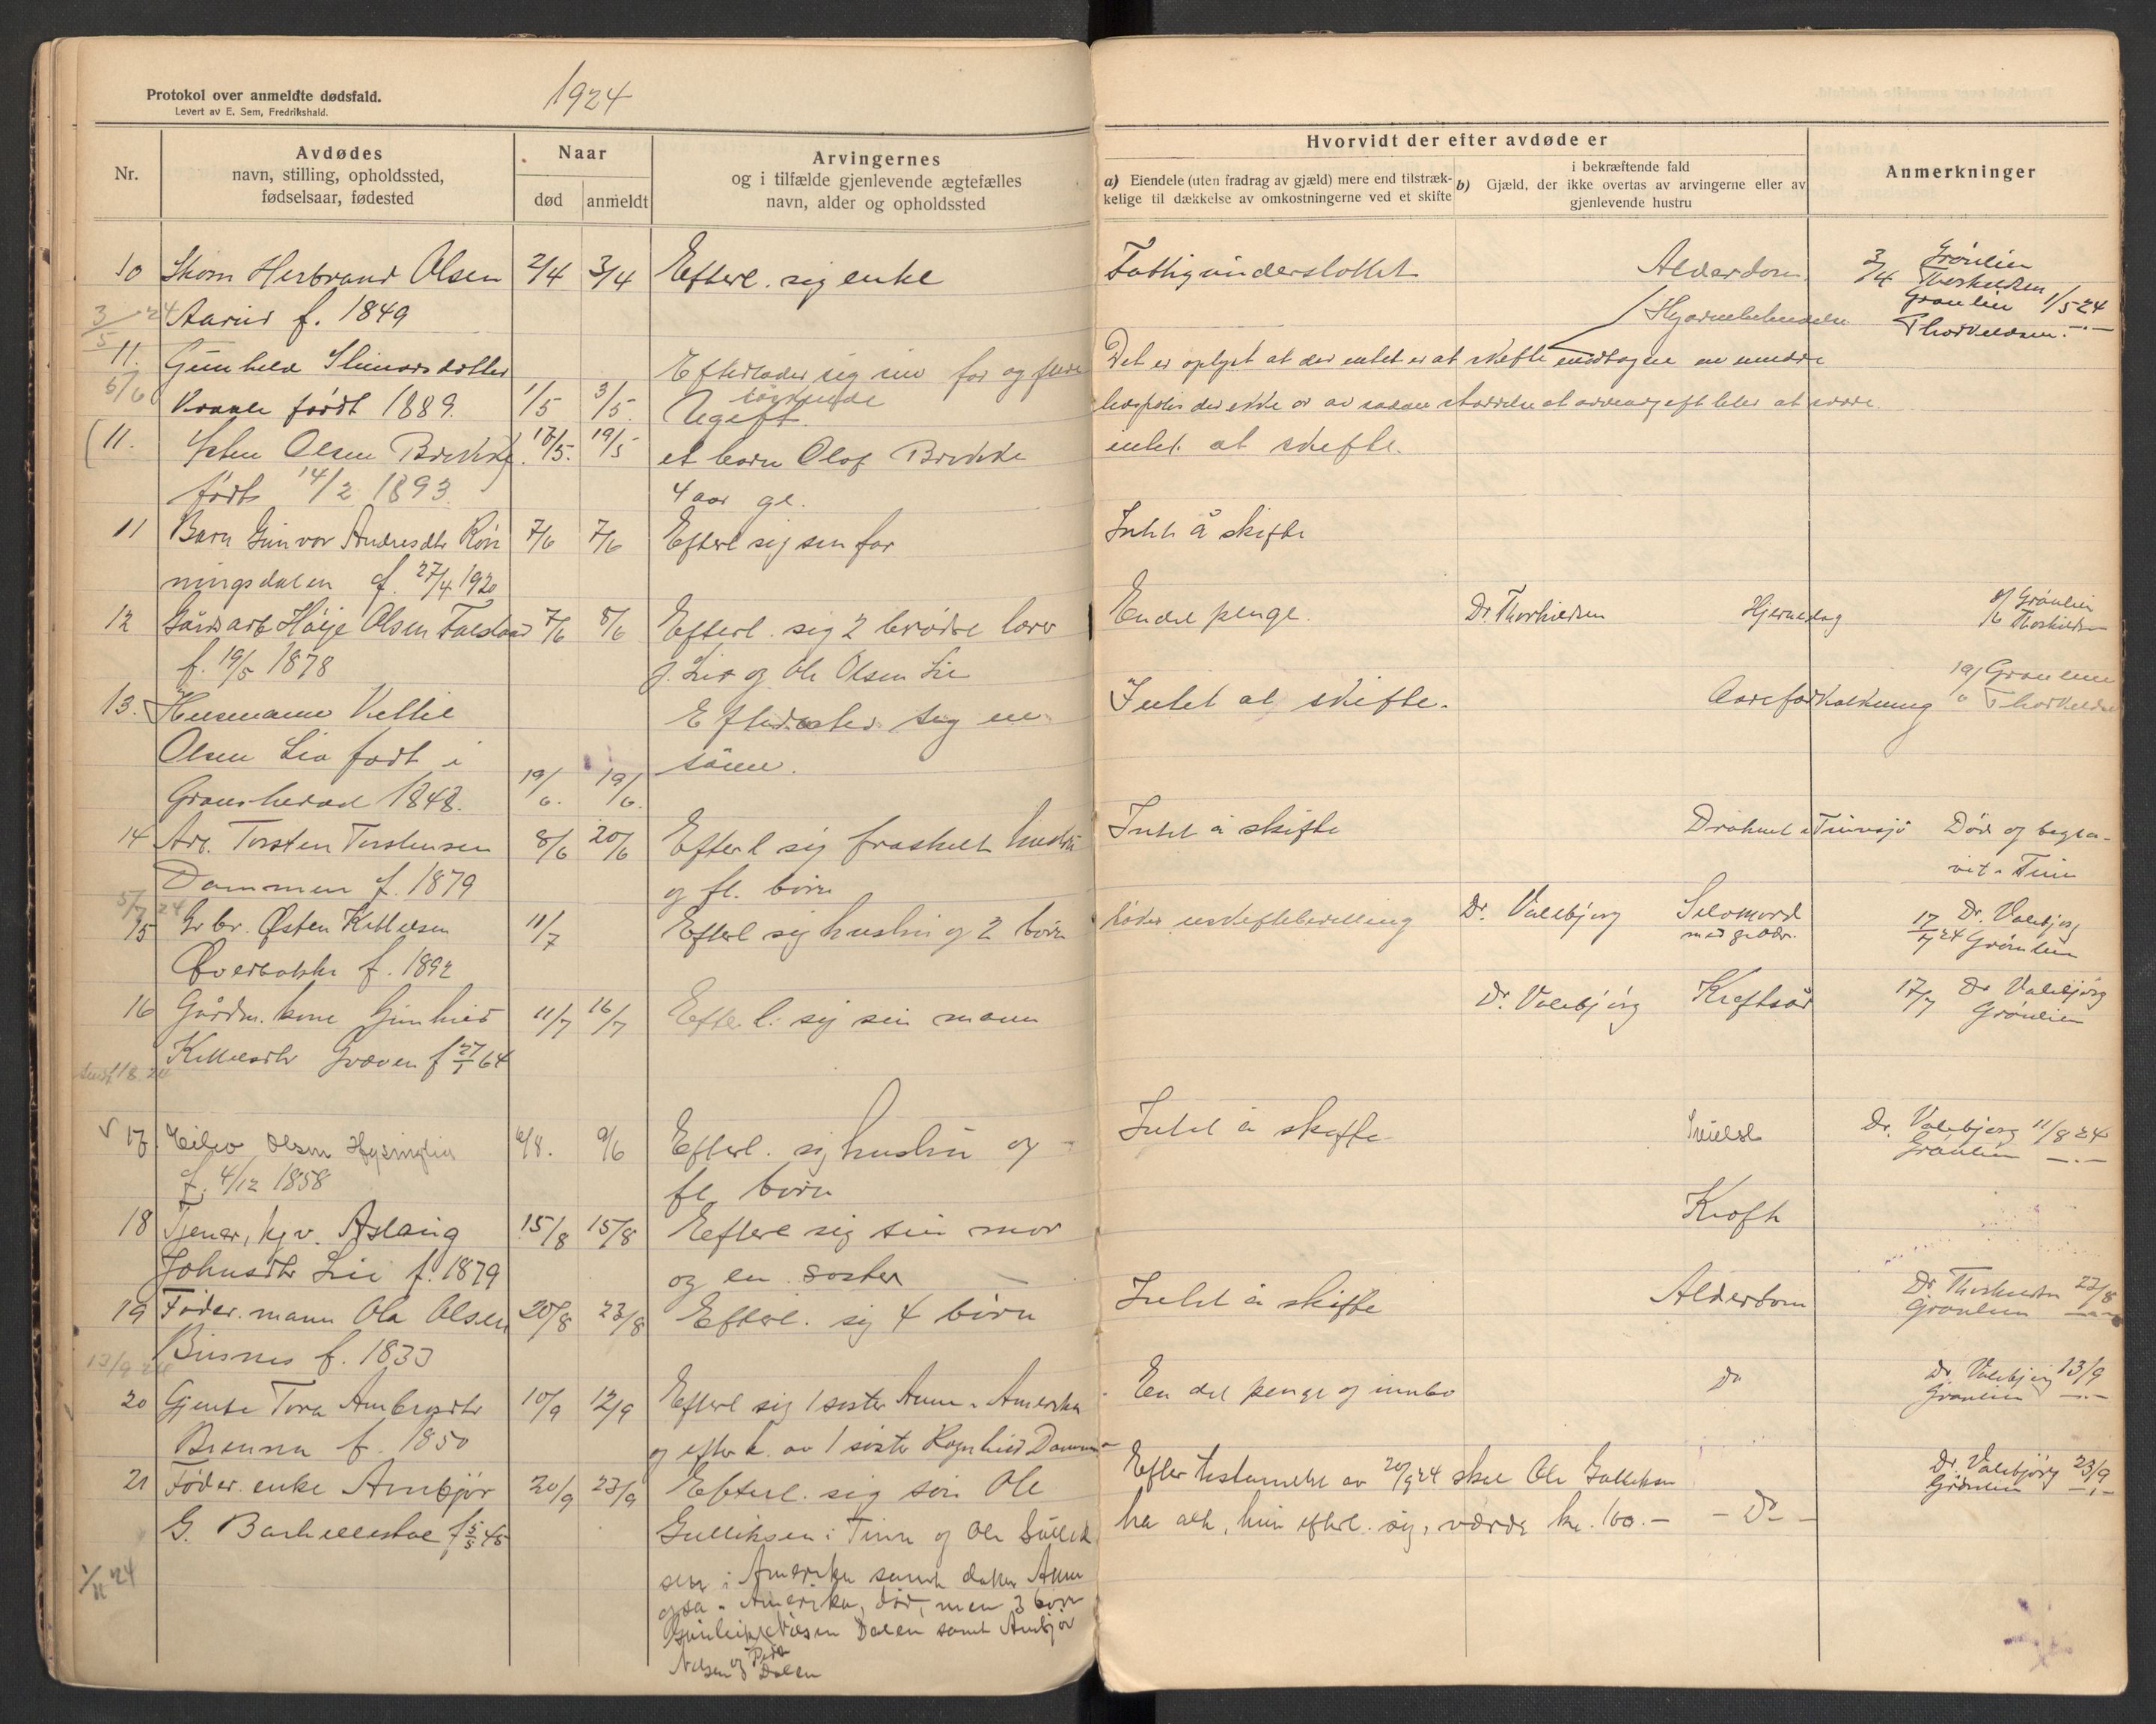 Protokol over anmeldte dødsfald.
Levert av E. Sem, Fredrikshald.
1924
Nr.
Avdødes
navn, stilling, opholdssted,
fødselsaar, fødested
Naar
død
anmeldt
Arvingernes
og i tilfælde gjenlevende ægtefælles
navn, alder og opholdssted
Hvorvidt der efter avdøde er
a) Eiendele (uten fradrag av gjæld) mere end tilstræk-
kelige til dækkelse av omkostningerne ved et skifte
i bekræftende fald
b) Gjæld, der ikke overtas av arvingerne eller av
gjenlevende hustru
Anmerkninger
10 Herbrand Olsen 2/4 3/4 Efterl. sig enke Fattigunderstøttet Alderdom 3/4 Grönlien
Thorkildsen
3/5 24 Aarnes f. 1849 Grönlien 1/5 24
Thorkildsen
11. Gunhild Efterlader sig sin far og flere
söskende
Det er oplyst at der intet er at skifte
6/6 født 1889. 1/5 3/5. Ugift.
(11. Olsen Brekke. 17/5. 19/5 et barn Olaf Brekke intet at skifte.
født 14/2 1893 4 aar gl.
11 Barn Gunvor Andresdtr Røn 7/6 7/6 Efterl sig sin far Intet å skifte
ningsdalen f. 27/4 1920
12 Gårdsarb Høije Olsen 7/6 8/6 Efterl. sig 2 brødre En del penge. Dr. Thorkildsen Hjerneslag 8/6 Grönlien
Thorkildsen
f. 19/5 1878 og Ole Olsen Lie
13. Husmann Kittil Efterlader sig en Intet at skifte. Aareforkalkning 19/6 Grönlien
Thorkildsen
Olsen Lia født i sönn.
Gransherad 1848. 19/6. 19/6.
14 Arb. Torsten Torstensen 8/6 20/6 Efterl sig fraskilt hustru Intet å skifte Druknet i Tinnsjö Død og begra-
vet i Tinn
Dammen f. 1879 og fl. börn
5/7 24
15 Gr br. Østen Kittilsen 11/7 Efterl sig hustru og 2 börn Dr. Valebjørg Selvmord
med gevær.
17/7 24 Dr. Valebjørg
Grönlien
Øverbakke f. 1892
16 Gårdm. kone Gunhild 11/7 16/7 Efterl. sig sin mann Dr. Valebjørg Kreftsår 17/7 Dr Valebjørg
Grönlien
Kittilsdtr Græven f 27/1 64
17 Eilev Olsen 6/8. 9/6 Efterl. sig hustru og Intet å skifte Dr. Valebjørg 11/8 24
Grönlien
f. 4/12 1858 fl. börn
18 Tjener, Aslaug 15/8 15/8 Efterl sig sin mor Kreft
Johnsdtr Lie f. 1879 og en søster
19 Føder. mann Ola Olsen 20/8 23/8 Efterl. sig 4 börn Intet å skifte Alderdom Dr. Thorkildsen 23/8
Grönlien
Busnes f. 1833
13/9 24
20 Gjente Tora 10/9 12/9 Efterl sig 1 søster Anne i Amerika En del penge og innbo Do Dr. Valebjørg 13/9
Grönlien
Brenna f. 1850 og efterk. av 1 søster Ragnhild Dammen
21 Føder. enke Arnbjør 20/9 23/9 Efterl. sig søn Ole Efter testamente av 20/9 24 skal Ole Gulliksen Dr. Valebjørg 23/9
Grönlien
G. Bakhellestøe f 5/5 45 Gulliksen i Tinn og Ole Gullik ha alt, hun efterl. sig, værde kr. 100.- - Do -
1/11 24
sen i Amerika samt datter Anne
også i Amerika, død, men 3 børn
Nilsen Dalen samt Arnbjør
Nilsen og Peder Dalen